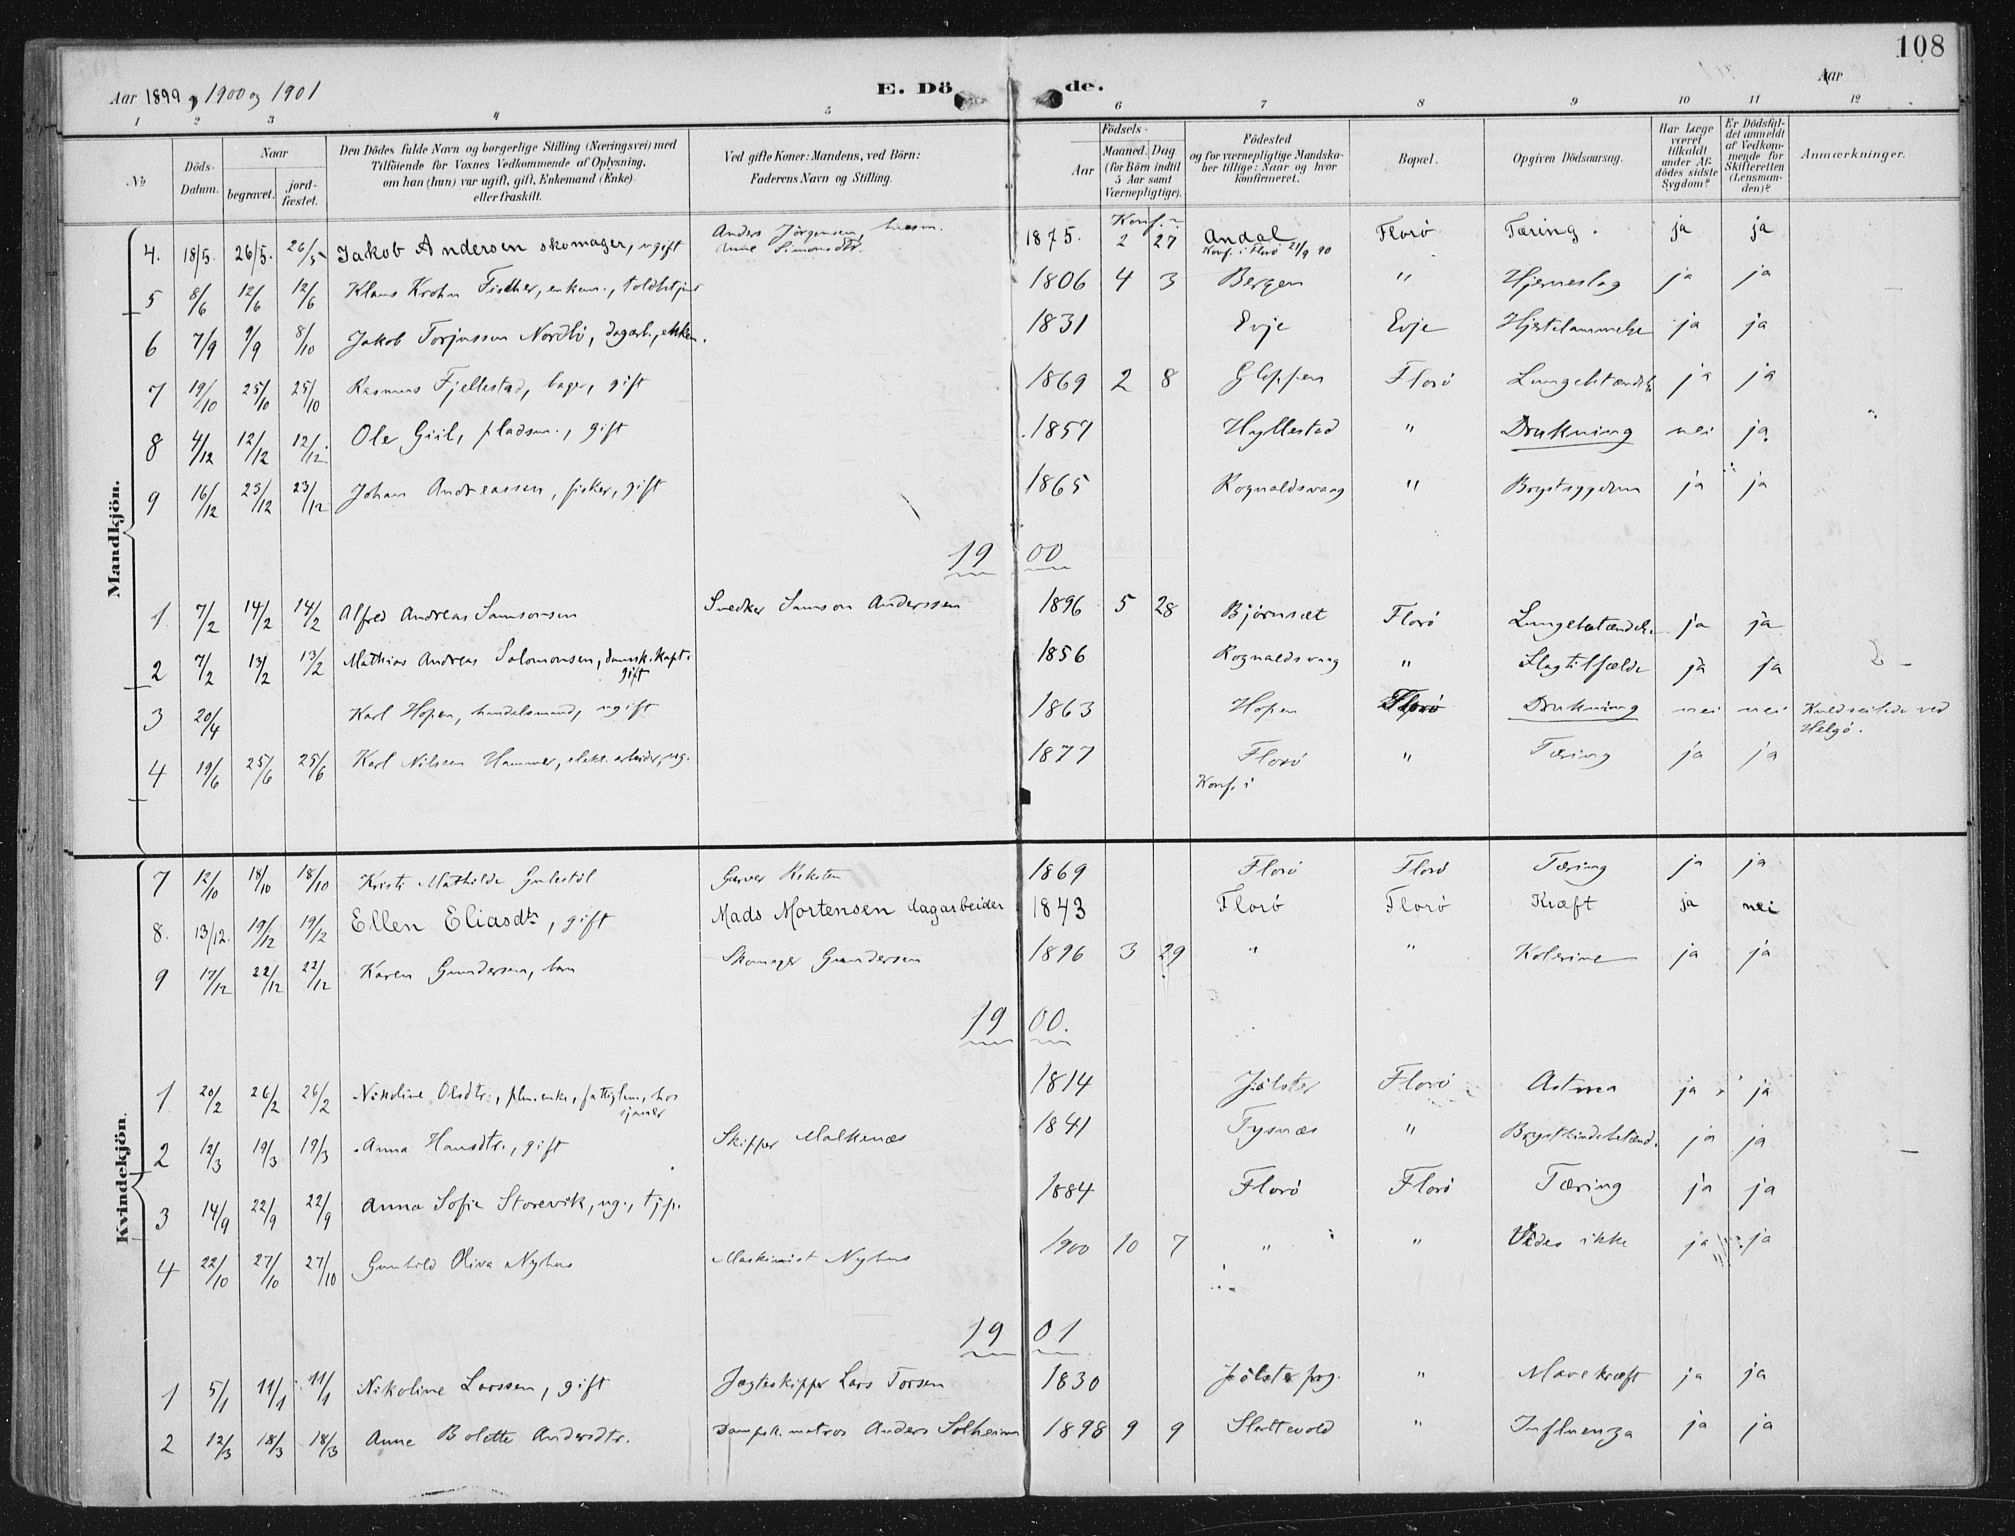 108
Aar 1899 og 1900 og 1901 E. Dö de. Aar
1 2 3 4 5 6 7 8 9 10 11 12
No Döds-Datum. Naar begravet. jord-fæstet. Den Dödes fulde Navn og borgerlige Stilling (Næringsvei) med Tilföiende for Voxnes Vedkommende af Oplysning, om han (hun) var ugift, gift, Enkemand (Enke) eller fraskilt. Ved gifte Koner: Mandens, ved Börn: Faderens Navn og Stilling. Födsels- Aar Maaned. Dag (for Börn indtil 5 Aar samt Værnepligtige). Födested og for værnepligtige Mandska-ber tillige: Naar og hvor konfirmeret. Bopæl. Opgiven Dödsaarsag. Har Læge været tilkaldt under Af-dödes sidste Sygdom? Er Dödsfal-det anmeldt af Vedkom-mende for Skifteretten (Lensman-den)? Anmærkninger.
Mandkjön.
4. 18/5 26/5. 26/5 Jakob Andersen skomager, ugift Anders Jörgensen, husm. Simonsdtr. 1875. 2 27 Andal Konf. i Florö 21/9 90 Florö Tæring. ja ja
5 8/6 12/6 12/6 Klaus Krohn Fischer, enkem., 1806 4 3 Bergen " Hjerneslag ja ja
6 7/9 9/9 8/10 Jakob Torjussen Nordbö, dagarb., enkem. 1831 Evje Evje Hjertelammelse ja ja
7 19/10 25/10 25/10 Rasmus Fjellestad, bager, gift 1869 2 8 Gloppen Florö ja ja
8 4/12 12/12 12/12 Ole Giil, pladsm., gift 1857 Hyllestad " Drukning nei ja.
9 16/12 23/12 23/12 Johan Andreassen, fisker, gift 1865 Rognaldsvaag " Brystsygdom ja ja
19 00
1 7/2 14/2 14/2 Alfred Andreas Samsonsen Snedker Samson Anderssen 1896 5 28 Björnsæt Florö ja ja
2 7/2 13/2 13/2 Mathias Andreas Salomonsen, dampsk. kapt. gift 1856 Rognaldsvaag " Slagtilfælde ja ja
3 20/4 Karl Hopen, handelsmand, ugift 1863 Hopen Florö Drukning nei nei Kuldseilede ved Helgö.
4 19/6 25/6 25/6 Karl Nilssen Hammer, arbeider, ug. 1877 Florö Konf. i " Tæring ja ja
Kvindekjön
7 12/10 18/10 18/10 Kristi Mathilde Gulestöl Garver 1869 Florö Florö Tæring ja ja
8. 13/12. 19/12 19/12 Ellen Eliasdtr, gift Mads Mortensen dagarbeider 1843 Florö Florö Kræft ja nei
9 17/12 22/12 22/12 Karen Gundersen, barn Skomager Gundersen 1896 3 29 " " Kolerine ja ja
19 00.
1 20/2 26/2 26/2 Nikoline Olsdtr., 1814 Jölster Florö Astma ja ja
2 12/3 19/3 19/3 Anna Hansdtr., gift Skipper Malkenæs 1841 Tysnæs " ja ja
3 14/9 22/9 22/9 Anna Sofie Storevik, ug., tjp. 1884 Florö Florö Tæring ja ja
4 22/10 27/10 27/10 Gunhild Oliva Nyhus Maskinist Nyhus 1900 10 7 " " Vides ikke ja ja
19 01
1 5/1 11/1 11/1 Nikoline Larssen, gift Jægteskipper Lars Torsen 1830 Jölster prg. " Mavekræft ja ja
2 12/3 18/3 18/3 Anne Bolette Andersdtr. Dampsk. matros Anders Solheim 1898 9 9 Slettevold " Influenza ja ja